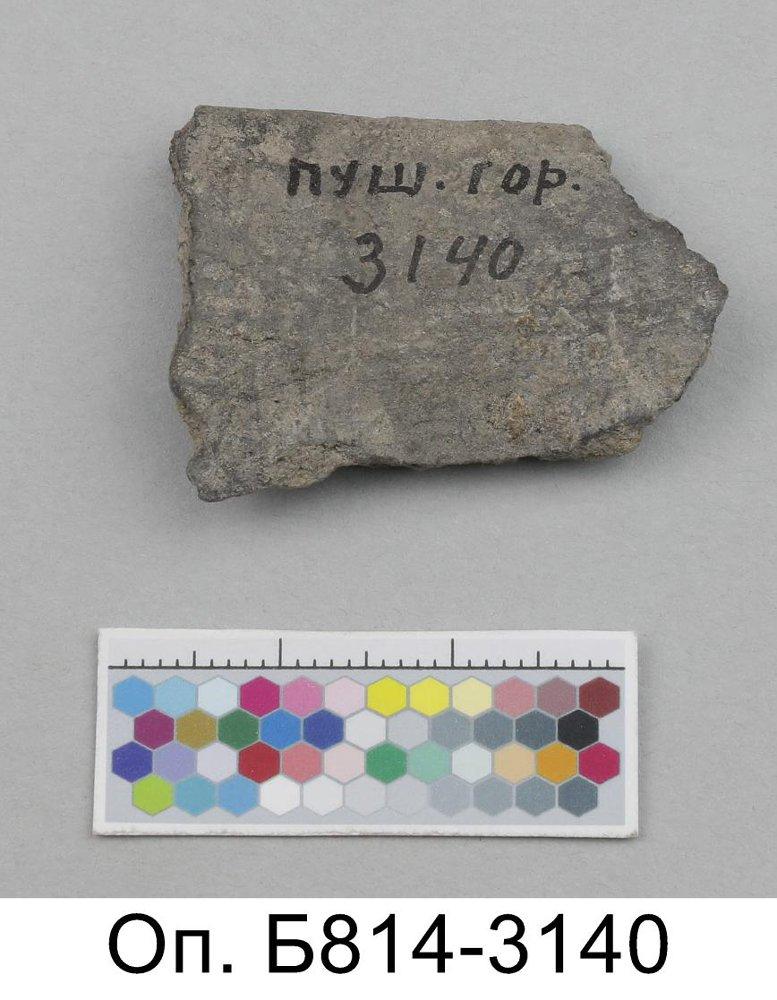 ПУШ. ГОР.
3140
Оп. Б814-3140